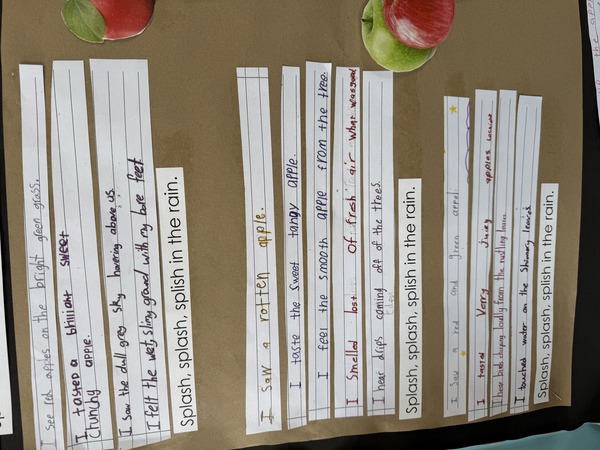 I see red apples on the bright green grass.
I tasted a brilliant sweet
chuning apple.
I saw the dull grey sky hovering above us.
I felt the wet, sling ground with my bare feet.
Splash, splash, splish in the rain.
I saw a rotten apple.
I taste the sweet tangy apple.
I feel the smooth apple from the tree.
I smelled lost of fresh air what was good
I hear drips coming off of the trees.
Splash, splash, splish in the rain.
I saw a red and green appel.
I tasted Verry Juicy apples
birds chirping loudly from the rustling leaves.
I touched water on the Shimmery leaves.
Splash, splash, splish in the rain.